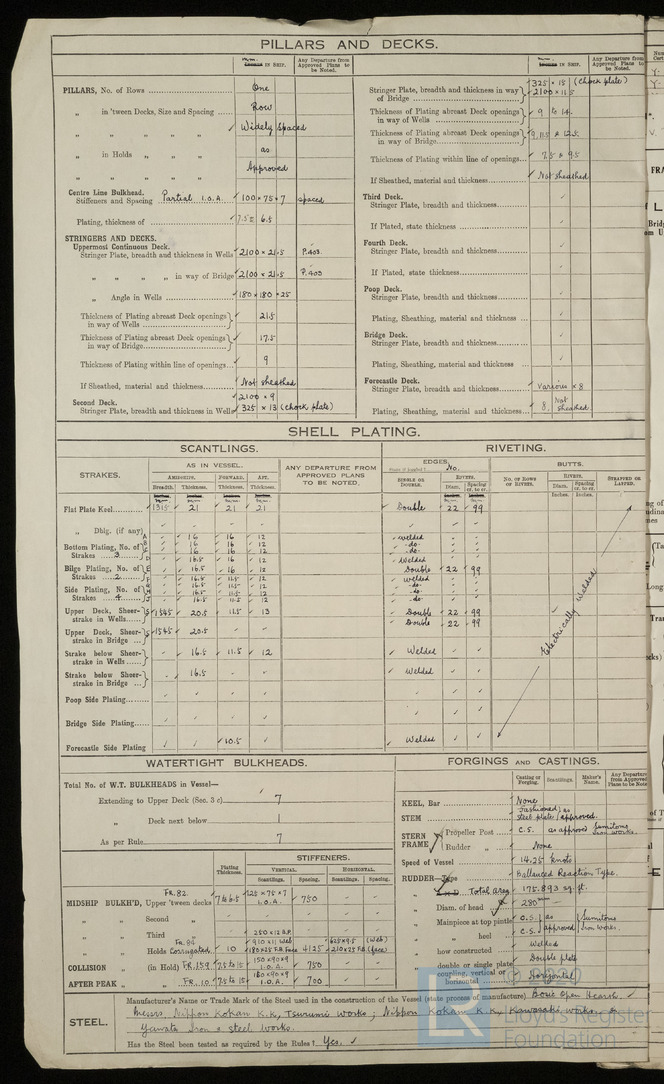 PILLARS AND DECKS.
m.m. IN SHIP.
Any Departure from Approved Plans to be Noted.
PILLARS, No. of Rows One
„ in 'tween Decks, Size and Spacing Row
„ „ „ „ Widely Spaced
„ in Holds „ „ as
„ „ „ „ Approved
Centre Line Bulkhead.
Stiffeners and Spacing Partial I.O.A. 100 × 75 × 7 spaced
Plating, thickness of 7.5 & 6.5
STRINGERS AND DECKS.
Uppermost Continuous Deck.
Stringer Plate, breadth and thickness in Wells 2100 × 21.5 P.403
„ „ „ „ in way of Bridge 2100 × 21.5 P.403
„ Angle in Wells 180 × 180 × 25
Thickness of Plating abreast Deck openings in way of Wells 21.5
Thickness of Plating abreast Deck openings in way of Bridge 17.5
Thickness of Plating within line of openings 9
If Sheathed, material and thickness Not sheathed
Second Deck. 2100 × 9
Stringer Plate, breadth and thickness in Wells 325 × 13 (Chock plate)
m.m. IN SHIP.
Any Departure from Approved Plans to be Noted.
325 × 13 (Chock plate)
Stringer Plate, breadth and thickness in way of Bridge 2100 × 11.5
Thickness of Plating abreast Deck openings in way of Wells 9 to 14
Thickness of Plating abreast Deck openings in way of Bridge 9, 11.5 & 12.5
Thickness of Plating within line of openings 7.5 & 9.5
If Sheathed, material and thickness Not sheathed
Third Deck.
Stringer Plate, breadth and thickness
If Plated, state thickness
Fourth Deck.
Stringer Plate, breadth and thickness
If Plated, state thickness
Poop Deck.
Stringer Plate, breadth and thickness
Plating, Sheathing, material and thickness
Bridge Deck.
Stringer Plate, breadth and thickness
Plating, Sheathing, material and thickness
Forecastle Deck.
Stringer Plate, breadth and thickness Various × 8
Plating, Sheathing, material and thickness 8 Not sheathed
SHELL PLATING.
SCANTLINGS.
RIVETING.
STRAKES.
AS IN VESSEL.
AMIDSHIPS. FORWARD. AFT.
Breadth. Thickness. Thickness. Thickness.
ANY DEPARTURE FROM APPROVED PLANS TO BE NOTED.
EDGES. No.
SINGLE OR DOUBLE.
RIVETS.
Diam. Spacing cr. to cr.
BUTTS.
NO. OF ROWS OF RIVETS.
RIVETS.
Diam. Spacing cr. to cr.
Inches. Inches.
STRAPPED OR LAPPED.
Flat Plate Keel 1315 21 21 21 Double 22 99
„ Dblg. (if any)
Bottom Plating, No. of Strakes 3
A 16 16 12 welded
B 16 16 12 -do-
C 16 16 12 -do-
D 16.5 16 12 Welded
Bilge Plating, No. of Strakes 2 E 16.5 16 12 Double 22 99
F 16.5 11.5 12 welded
Side Plating, No. of Strakes 4
16.5 11.5 12 -do-
16.5 11.5 12 -do-
16.5 11.5 12 -do-
Upper Deck, Sheer-strake in Wells S 1545 20.5 11.5 13 Double 22 99
Double 22 99
Upper Deck, Sheer-strake in Bridge S 1545 20.5 - -
Strake below Sheer-strake in Wells - 16.5 11.5 12 Welded
Strake below Sheer-strake in Bridge - 16.5 Welded
Poop Side Plating
Bridge Side Plating
Forecastle Side Plating 10.5 Welded
Electrically Welded
WATERTIGHT BULKHEADS.
Total No. of W.T. BULKHEADS in Vessel—
Extending to Upper Deck (Sec. 3 c) 7
„ Deck next below 1
As per Rule 7
Plating Thickness.
STIFFENERS.
VERTICAL. HORIZONTAL.
Scantlings. Spacing. Scantlings. Spacing.
MIDSHIP BULKH'D, Upper 'tween decks FR. 82. 7 & 6.5 125 × 75 × 7 I.O.A. 750
„ „ Second „
„ „ Third „ 250 × 12 B.P.
„ „ Holds Fr. 94 Corrugated 10 910 × 11 Web 180 × 25 F.B. Face 4125 625 × 9.5 (Web) 210 × 25 F.B. (face)
COLLISION „ (in Hold) FR. 159 7.5 to 15 150 × 90 × 9 I.O.A. 750
AFTER PEAK „ „ FR. 10 7.5 to 15 150 × 90 × 9 I.O.A. 700
FORGINGS AND CASTINGS.
Casting or Forging. Scantlings. Maker's Name. Any Departure from Approved Plans to be Noted
KEEL, Bar None
STEM Fashioned steel plate as approved.
STERN FRAME Propeller Post C.S. as approved Sumitomo Iron works.
Rudder „ None
Speed of Vessel 14.25 knots
RUDDER—Type Ballanced Reaction Type.
„ Total area 175.893 sq. ft.
„ Diam. of head 280 mm
„ Mainpiece at top pintle C.S. as Sumitomo
„ „ heel C.S. approved Iron works.
„ how constructed Welded
„ double or single plate Double plate
„ coupling, vertical or horizontal Horizontal
STEEL.
Manufacturer's Name or Trade Mark of the Steel used in the construction of the Vessel (state process of manufacture) Basic Open Hearth.
Messrs. Nippon Kokan K.K. Tsurumi works; Nippon Kokan K.K. Kawasaki works &
Yawata Iron & steel works.
Has the Steel been tested as required by the Rules? Yes.
© 2020
Lloyd's Register
Foundation